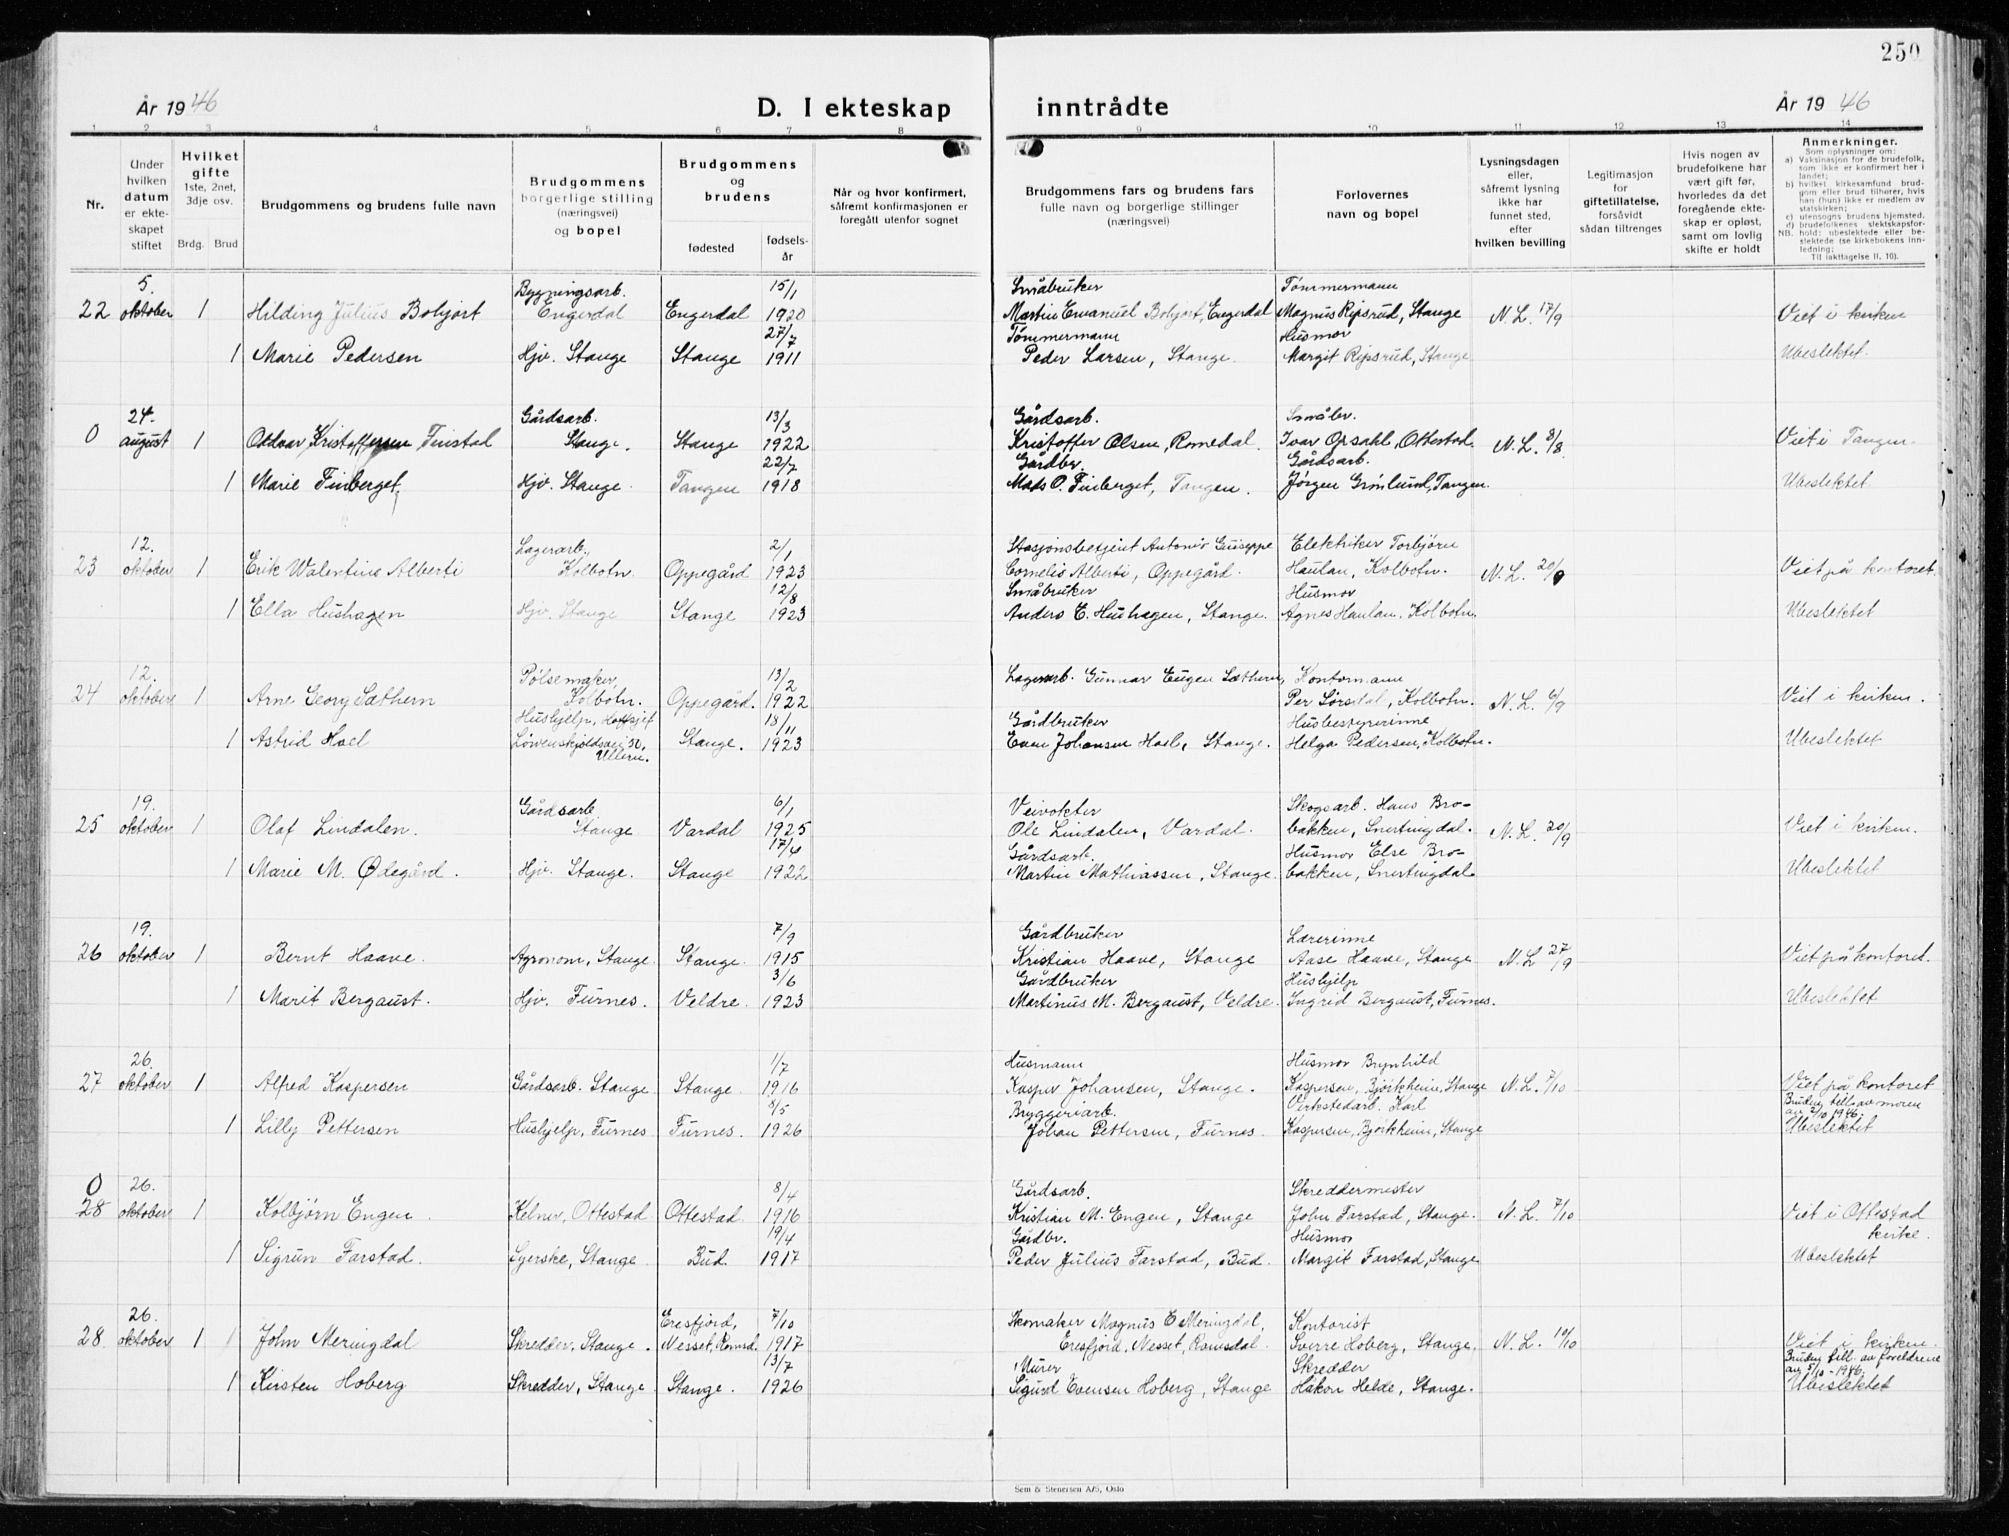 250
År 1946
D. I ekteskap
inntrådte
År 1946
1 2 3 4 5 6 7 8 9 10 11 12 13 14
Nr.
Under hvilken datum er ekteskapet stiftet
Hvilket gifte
1ste, 2net, 3dje osv.
Brdg. Brud
Brudgommens og brudens fulle navn
Brudgommens borgerlige stilling (næringsvei) og bopel
Brudgommens og brudens
fødested
fødselsår
Når og hvor konfirmert, såfremt konfirmasjonen er foregått utenfor sognet
Brudgommens fars og brudens fars fulle navn og borgerlige stillinger (næringsvei)
Forlovernes navn og bopel
Lysningsdagen eller, såfremt lysning ikke har funnet sted, efter hvilken bevilling
Legitimasjon for giftetillatelse, forsåvidt sådan tiltrenges
Hvis nogen av brudefolkene har vært gift før, hvorledes da det foregående ekteskap er opløst, samt om lovlig skifte er holdt
Anmerkninger.
Som oplysninger om:
a) Vaksinasjon for de brudefolk, som ikke er konfirmert her i landet;
b) hvilket kirkesamfund brudgom eller brud tilhører, hvis han (hun) ikke er medlem av statskirken;
c) utensogns brudens hjemsted.
d) brudefolkenes slektskapsforhold: ubeslektede eller beslektede (se kirkebokens innledning;
NB.
Til iakttagelse II, 10).
5. Bygningsarb. 15/1 Småbruker Tømmermann
22 oktober 1 Hilding Julius Bohjort Engerdal Engerdal 1920 Martin Emanuel Bohjort, Engerdal Magnus Ripsrud, Stange N.L. 17/9 Viet i kirken
27/7 Tømmermann Husmor
1 Marie Pedersen Hjv. Stange Stange 1911 Peder Larsen, Stange. Margit Ripsrud, Stange Ubeslektet.
24. Gårdsarb. 13/3 Gårdsarb. Småbr.
0 august 1 Oddvar Kristoffersen Finstad Stange. Stange 1922 Kristoffer Olsen, Romedal. Ivar Opsahl, Ottestad. N.L. 8/8. Viet i Tangen.
22/7 Gårdbr. Gårdsarb.
1 Marie Finberget. Hjv. Stange. Tangen 1918 Mads O. Finberget, Tangen. Jørgen Grønlund, Tangen. Ubeslektet
12. Lagerarb., 2/1 Stasjonsbetjent Antonio Guiseppe Elektriker Torbjörn
23 oktober 1 Erik Walentius Alberti Kolbotn. Oppegård 1923 Cornelis Alberti, Oppegård. Haulan, Kolbotn. N.L. 20/9 Viet på kontoret.
12/8 Småbruker Husmor
1 Ella Hushagen Hjv. Stange Stange 1923 Anders E. Hushagen, Stange. Agnes Haulan, Kolbotn. Ubeslektet
12. Pølsemaker, 13/2 Lagerarb. Gunnar Eugen Sæthern, Kontormann
24 oktober 1 Arne Georg Sæthern Kolbotn. Oppegård. 1922 Per Sørsdal, Kolbotn. N.L. 6/9 Viet i kirken.
Hushjelp, Hoffsjef 18/11 Gårdbruker Husbestyrerinne
1 Astrid Hoel Løvenskjoldsvei 30, Stange. 1923 Even Johansen Hoel, Stange. Helga Pedersen, Kolbotn. Ubeslektet
Ullern.
19. Gårdsarb. 6/1 Veivokter Skogsarb. Hans Bro-
25 oktober 1 Olaf Lindalen. Stange Vardal 1925 Ole Lindalen, Vardal. bakken, Snertingdal. N.L. 20/9 Viet i kirken.
17/6 Gårdsarb. Husmor Else Bro-
1 Marie M. Ødegård. Hjv. Stange. Stange 1922 Martin Mathiassen, Stange. bakken, Snertingdal. Ubeslektet
19. 7/9 Gårdbruker Lærerinne
26 oktober 1 Bernt Haave. Agronom, Stange. Stange. 1915 Kristian Haave, Stange Aase Haave, Stange N.L 27/9 Viet på kontoret.
3/6 Gårdbruker Hushjelp
1 Marit Bergaust. Hjv. Furnes. Veldre. 1923 Martinus M. Bergaust, Veldre. Ingrid Bergaust, Furnes. Ubeslektet
26. 1/7 Husmann Husmor Brynhild
27 oktober 1 Alfred Kaspersen Gårdsarb. Stange Stange 1916 Kasper Johansen, Stange. Kaspersen, Bjørkheim, Stange N.L. 7/10 Viet på kontoret
8/5 Bryggeriarb. Verkstedarb. Karl Bruden till. av moren
av 5/10 1946
1 Lilly Pettersen Hushjelp, Furnes Furnes. 1926 Johan Pettersen, Furnes. Kaspersen, Bjørkheim, Stange Ubeslektet
0 26. 8/4 Gårdsarb. Skreddermester
28 oktober 1 Kolbjørn Engen Kelner, Ottestad Ottestad. 1916 Kristian M. Engen, Stange John Farstad, Stange. N.L. 7/10 Viet i Ottestad
19/4 Gårdbr. Husmor kirke.
1 Sigrun Farstad. Syerske, Stange Bud. 1917 Peder Julius Farstad, Bud. Margit Farstad, Stange Ubeslektet
26. Eresfjord, 7/10 Skomaker Magnus E Meringdal, Kontorist
28 oktober 1 1 John Meringdal Skredder, Stange. Nesset, Romsd. 1917 Eresfjord, Nesset, Romsdal. Sverre Hoberg, Stange. N.L. 10/10 Viet i kirken.
13/7 Murer Skredder Bruden till. av foreldrene
av 5/10-1946.
1 Kirsten Hoberg Skredder, Stange Stange. 1926 Sigurd Evensen Hoberg, Stange Håkon Helde, Stange. Ubeslektet
Sem & Stenersen A/S, Oslo